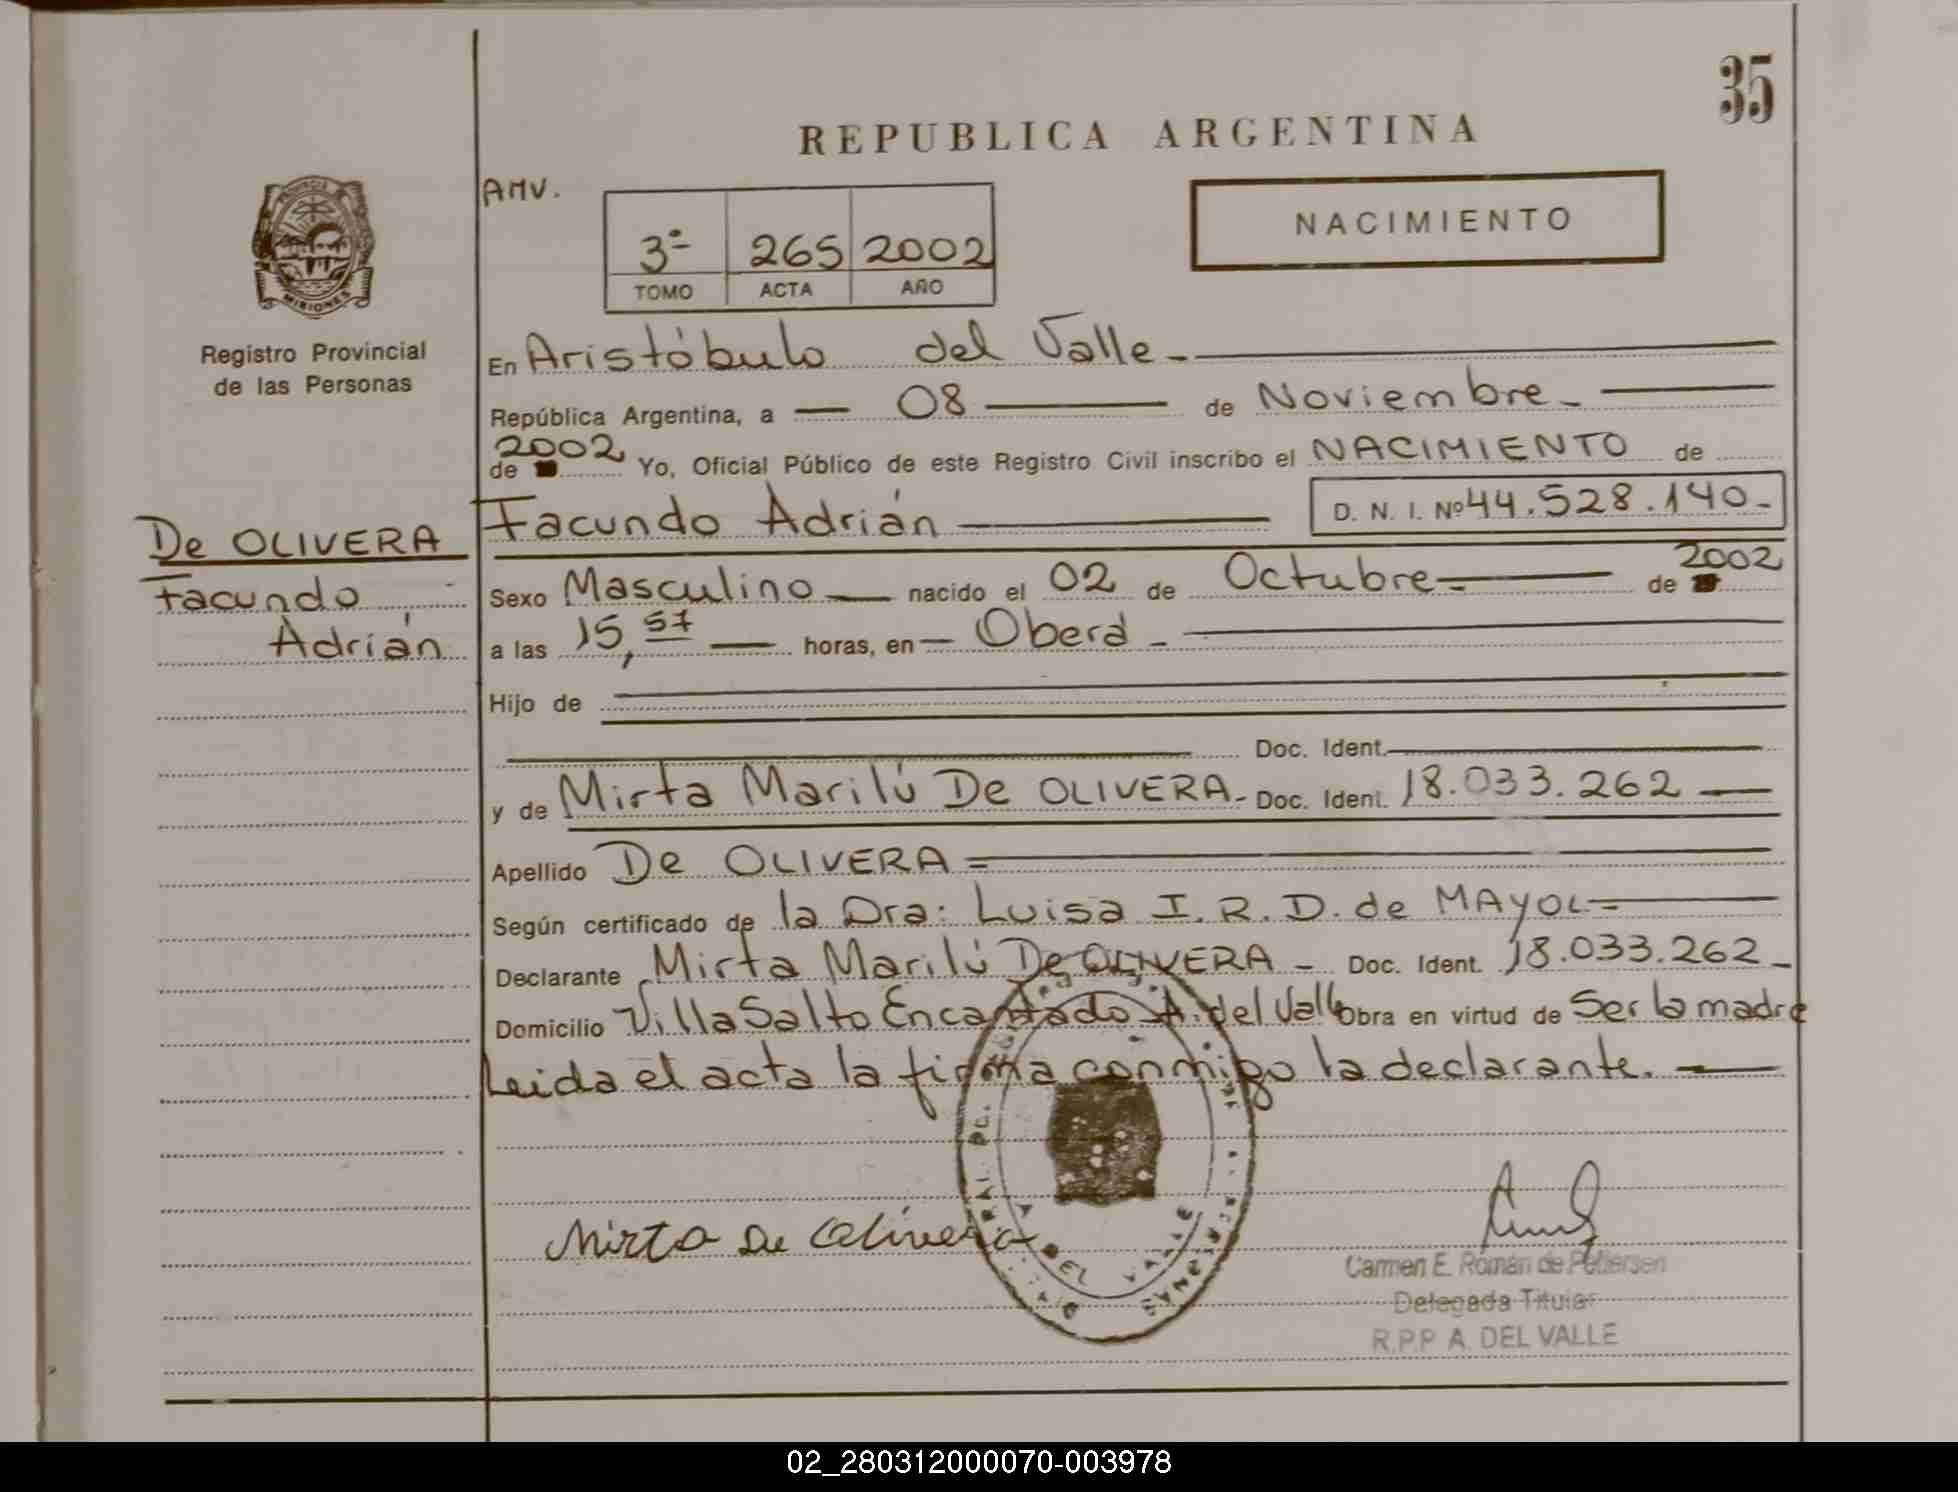 35
REPUBLICA ARGENTINA
AMV.
NACIMIENTO
3ª 265 2002
TOMO ACTA AÑO
PROVINCIA
MISIONES
Registro Provincial
de las Personas
En Aristóbulo del Valle -
República Argentina, a 08 de Noviembre -
de 2002 Yo, Oficial Público de este Registro Civil inscribo el NACIMIENTO de
Facundo Adrián D. N. I. Nº 44.528.140-
De OLIVERA
Facundo
Adrián
Sexo Masculino nacido el 02 de Octubre de 2002
a las 15,57 horas, en Oberá -
Hijo de
Doc. Ident.
y de Mirta Marilú De OLIVERA - Doc. Ident. 18.033.262
Apellido De OLIVERA =
Según certificado de la Dra: Luisa I. R. D. de MAYOL =
Declarante Mirta Marilú De OLIVERA - Doc. Ident. 18.033.262 -
Domicilio Villa Salto Encantado A. del Valle Obra en virtud de Ser la madre
Leida el acta la firma conmigo la declarante.
Mirta De Olivera
DEL VALLE
MISIONES
Carmen E. Román de Petersen
Delegada Titular
R.P.P A. DEL VALLE
02_280312000070-003978